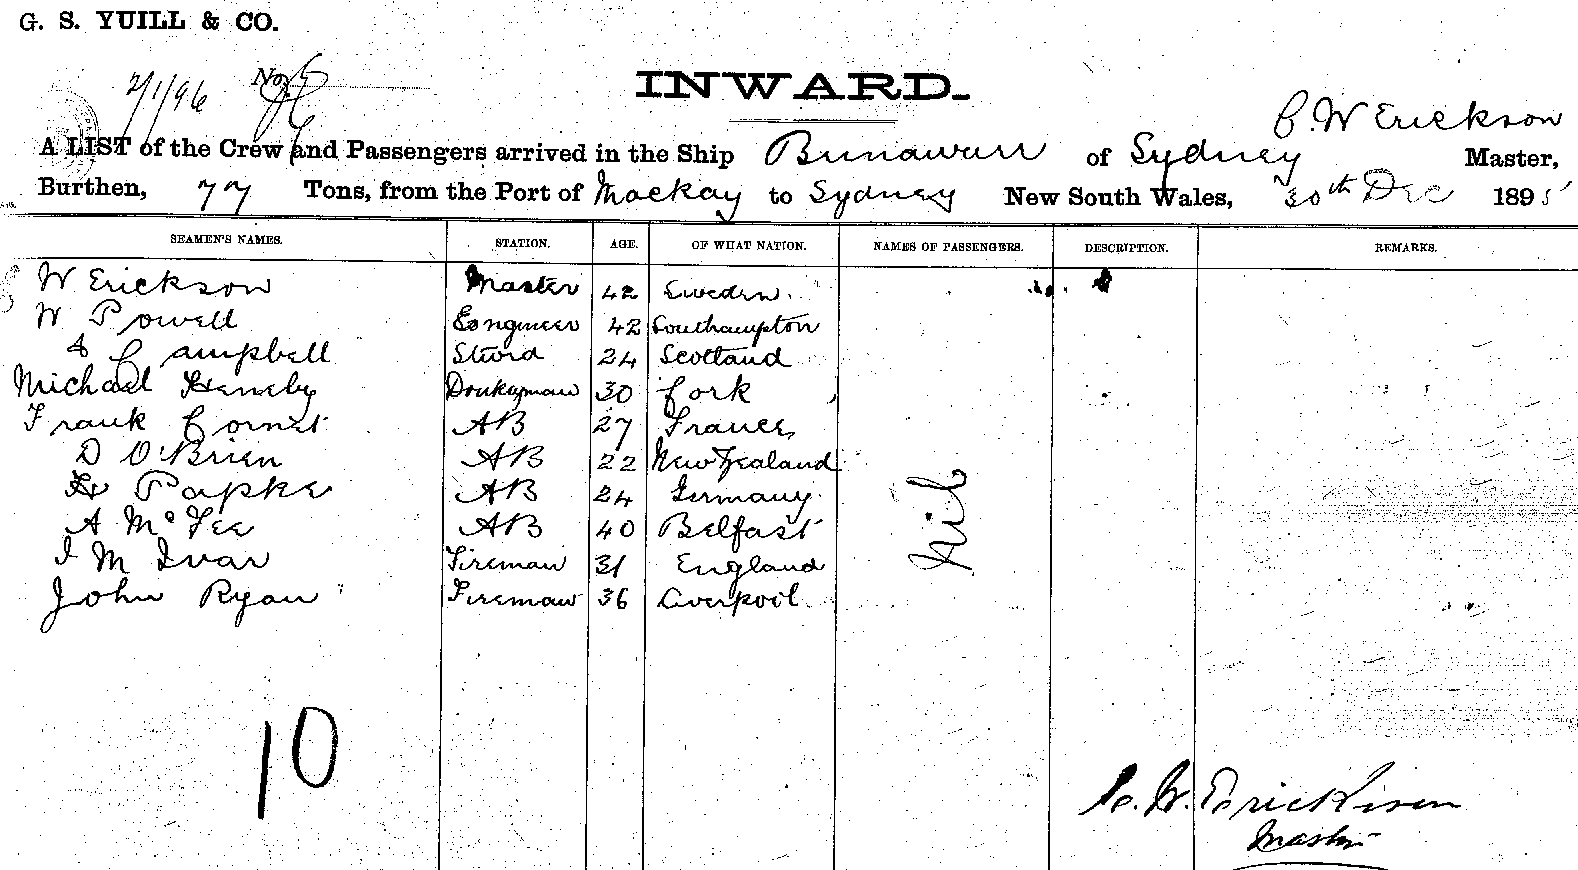 G. S. YUILL & CO.
2/1/96 No.
INWARD.
C. W Erickson
A LIST of the Crew and Passengers arrived in the Ship Bunawarr of Sydney Master,
Burthen, 77 Tons, from the Port of Mackay to Sydney New South Wales, 30th Dec 1895
SEAMEN'S NAMES. STATION. AGE. OF WHAT NATION. NAMES OF PASSENGERS. DESCRIPTION. REMARKS.
W Erickson Master 42 Sweden
W Powell Engineer 42 Southampton
Campbell Stwrd 24 Scotland
Michael Heneby Donkeyman 30 Cork
Frank Cornet AB 27 France
D O'Brien AB 22 New Zealand
Papke AB 24 Germany
A McFee AB 40 Belfast
I M Ivar Fireman 31 England
John Ryan Fireman 36 Liverpool
Nil
10
C. W. Erickson
Master